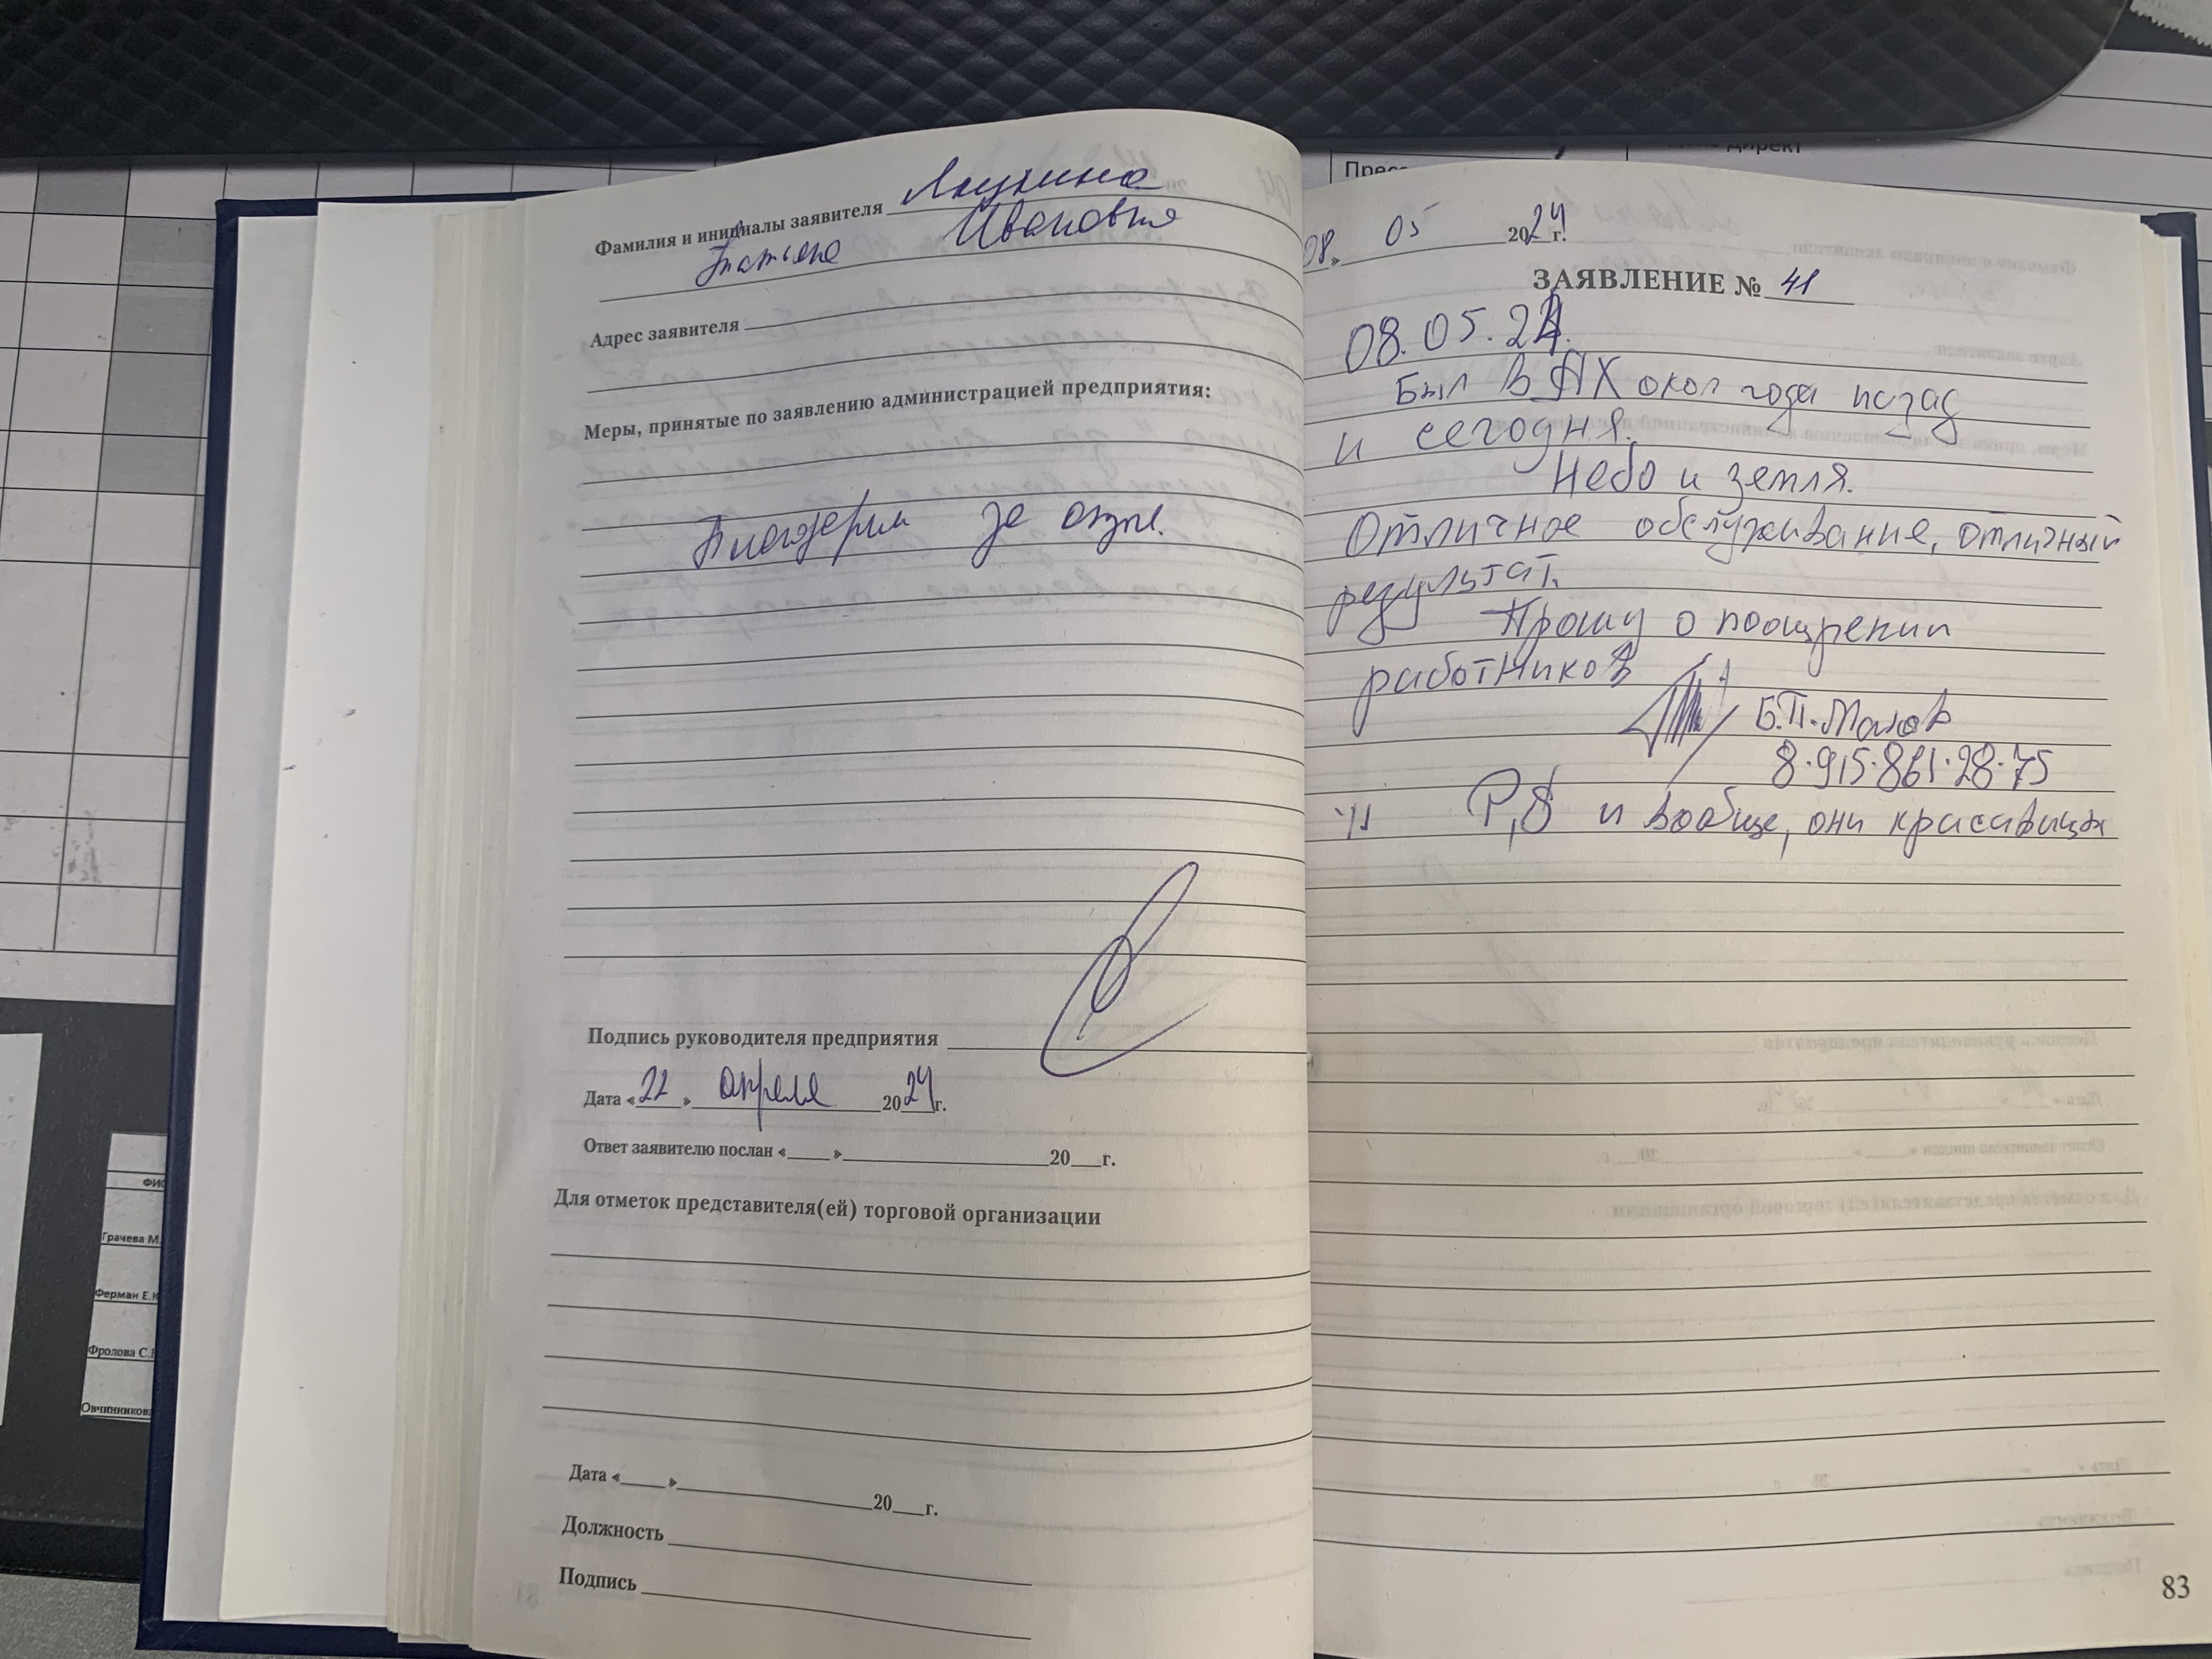 Фамилия и инициалы заявителя
Татьяна Ивановна
Адрес заявителя
Меры, принятые по заявлению администрацией предприятия:
за отзыв.
Подпись руководителя предприятия
Дата «22» апреля 2024 г.
Ответ заявителю послан «____» 20___г.
Для отметок представителя(ей) торговой организации
Дата «____» 20___г.
Должность
Подпись
08. 05 2024 г.
ЗАЯВЛЕНИЕ № 41
08.05.24.
Был в АХ окол года назад
и сегодня.
Небо и земля.
Отличное обслуживание, отличный
результат.
Прошу о поощрении
работников
Б.П.
8·915·861·28·75
P,S и вообще, они красавицы
83
Грачева М.
Ферман Е.
Фролова С.
Овчинникова